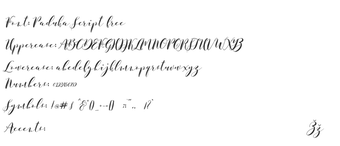 Font: Paduka Script free
Uppercase: ABCDEFGHIJKLMNOPQRSTUVWXYZ
Lowercase: abcdefghijklmnopqrstuvwxyz
Numbers: 0123456789
Symbols:
Accents: Žž